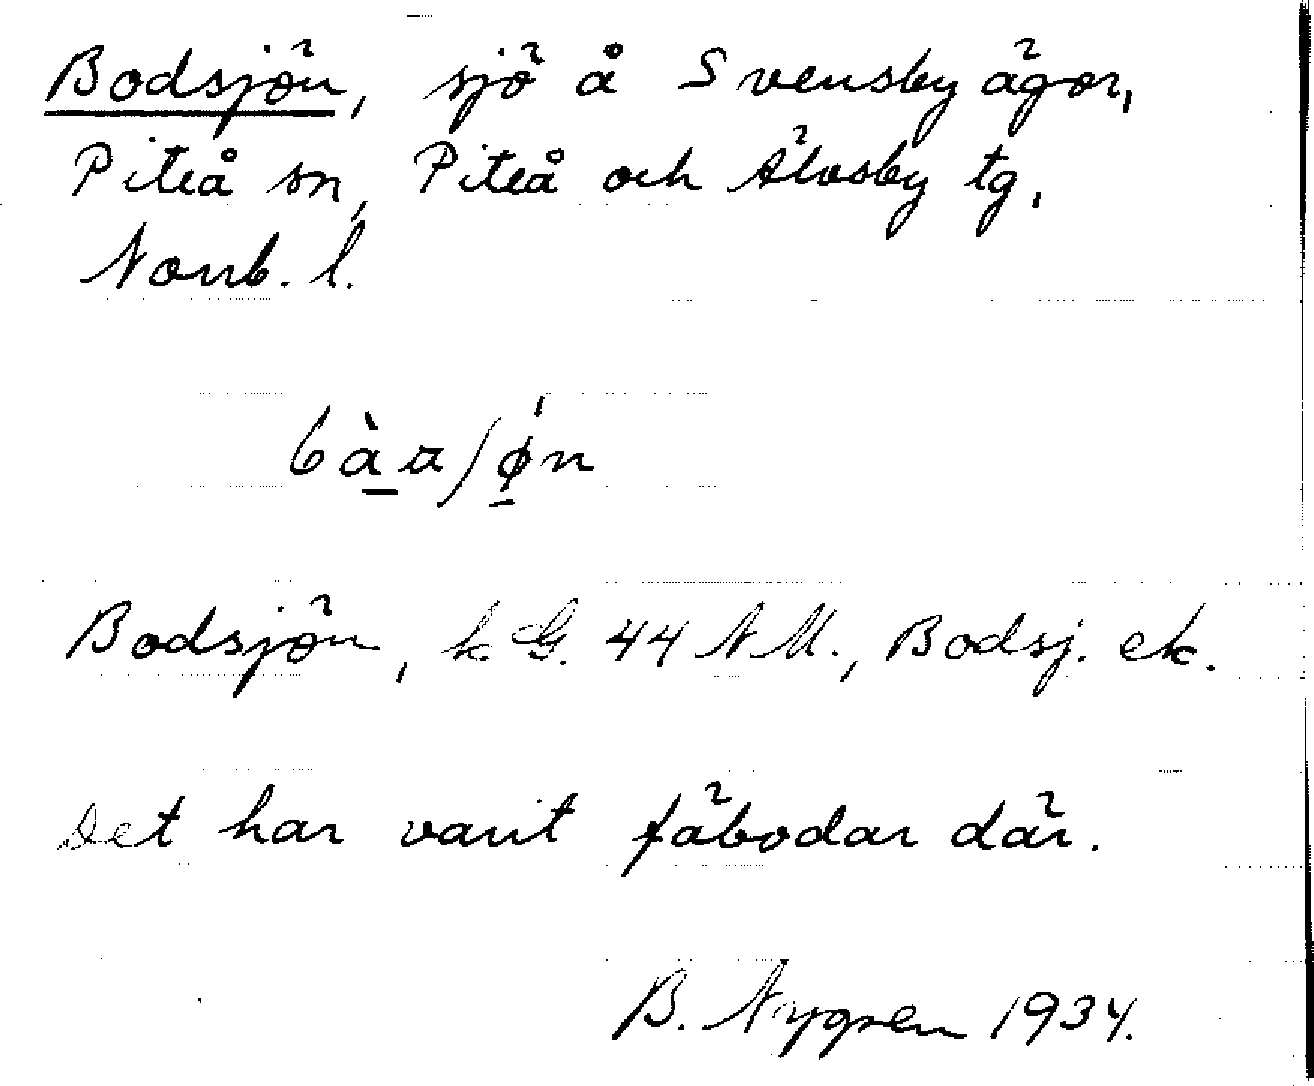 Bodsjön, sjö å Svensby ägor,
Piteå sn, Piteå och Älvsby tg,
Norrb. l.
Bodsjön, k. G. 44 N M., Bodsj. ek.
Det har varit fäbodar där.
B. Nygren 1934.